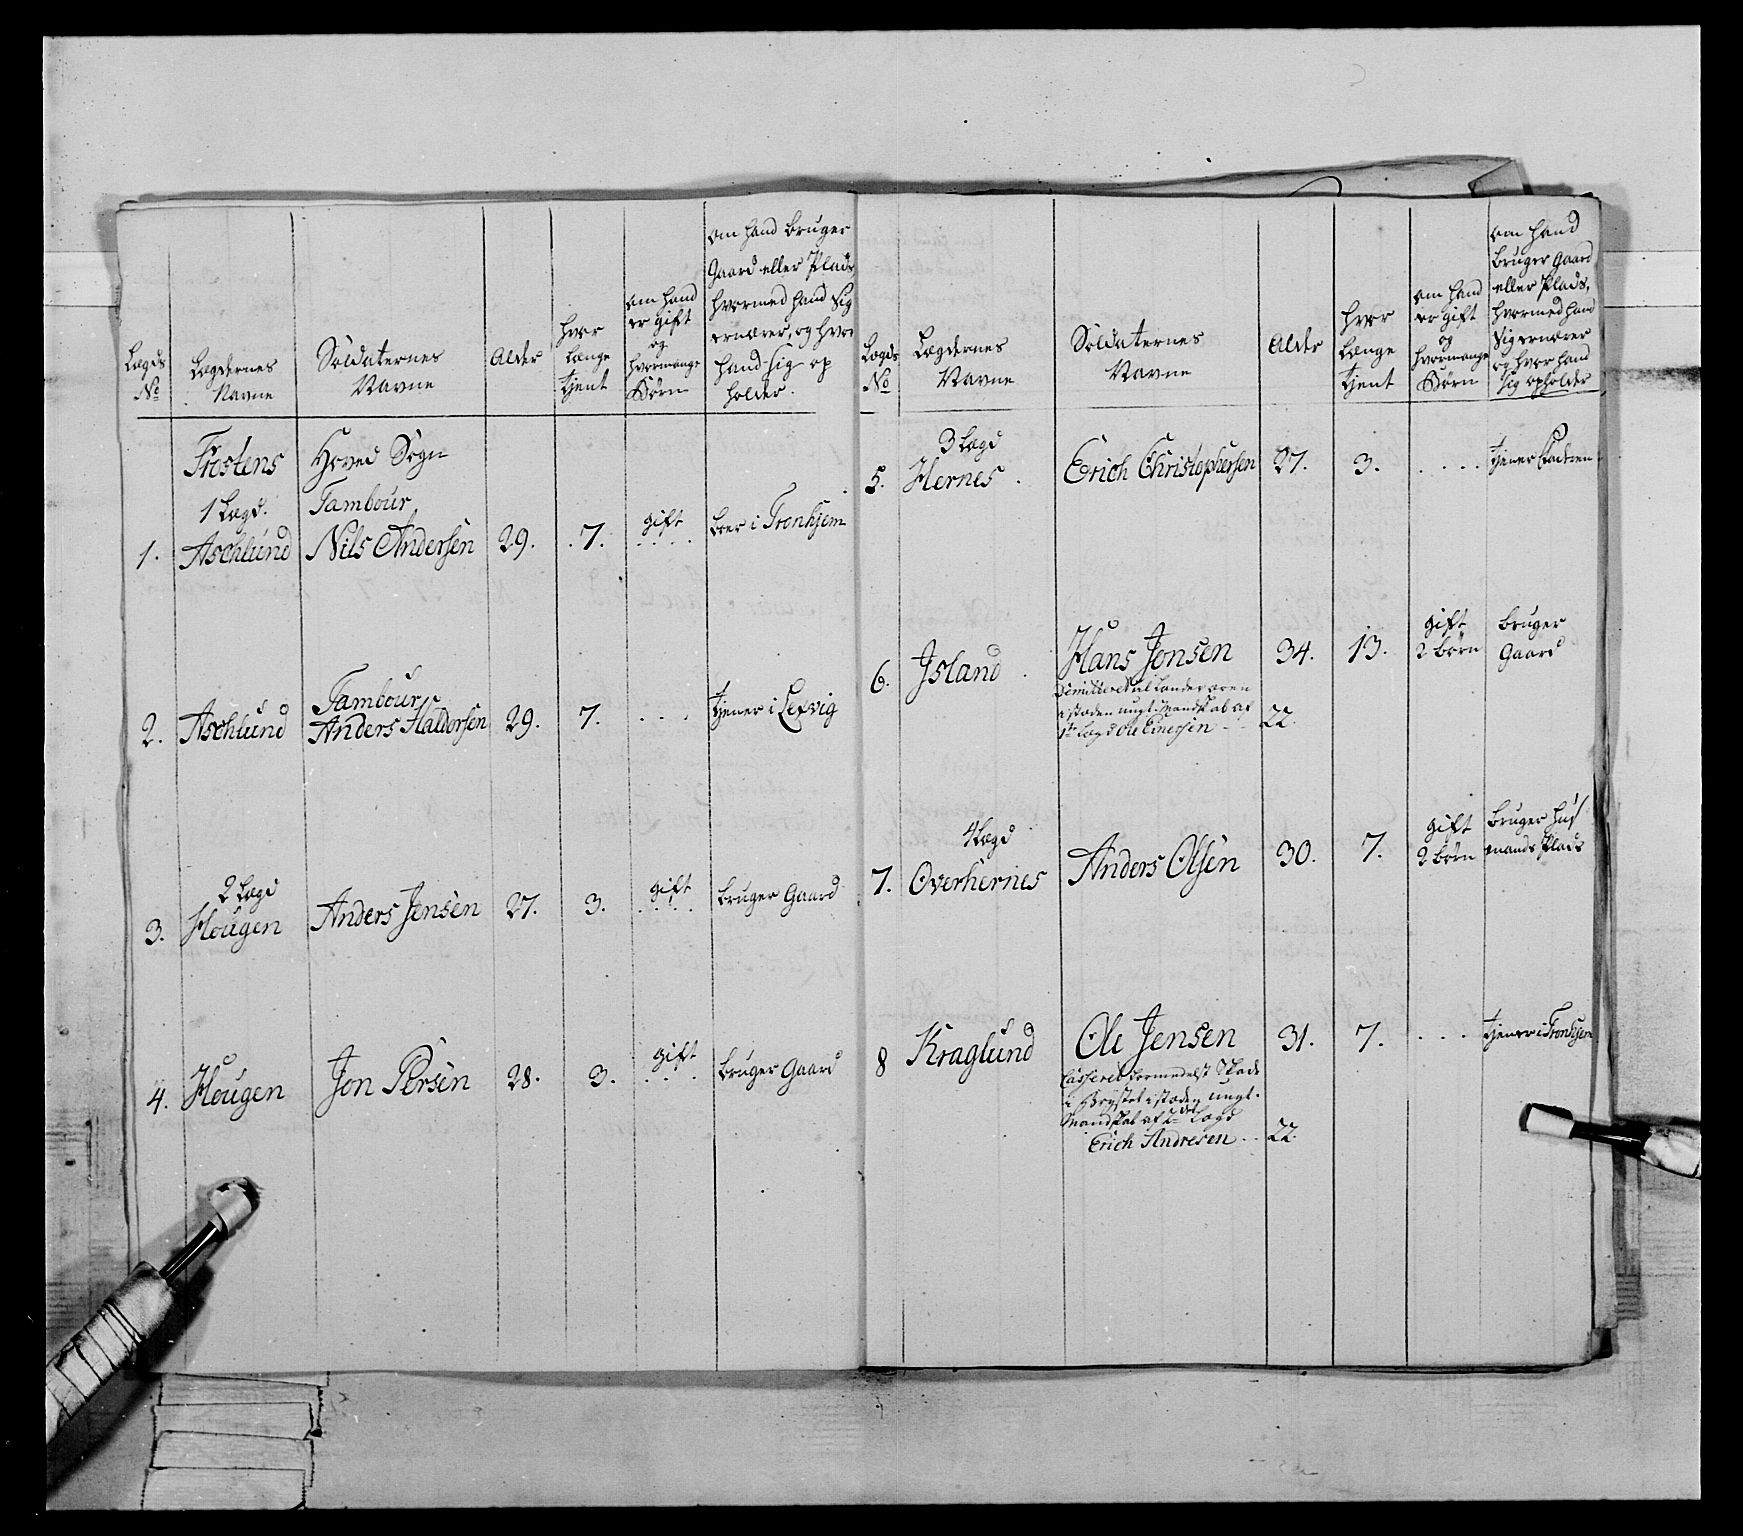 Lægds
No
Lægdernes
Navne
Soldaternes
Navne
Alder
hvor
længe
tjent
om hand
er gift
og
hvormange
Børn
om hand bruger
Gaard eller Plads
hvormed hand sig
ernærer, og hvor
hand sig op
holder.
Frostens Hoved Sogn
1 Lægd. Tambour
1. Aschlund Nils Andersen 29. 7. gift boer i Tronhjem
Tambour
2. Aschlund Anders Haldorsen 29. 7. .... tjener i Lexvig
2 Lægd
3. Hougen Anders Jensen 27. 3. gift bruger Gaard
4. Hougen Jon Persen 28. 3. gift bruger Gaard
Lægds
No
Lægdernes
Navne
Soldaternes
Navne
Alder
hvor
længe
tjent
om hand
er gift
og
hvormange
Børn
om hand
bruger Gaard
eller Plads,
hvormed hand
sig ernærer
og hvor hand
sig opholder
3 Lægd
5. Hernes. Erich Christophersen 27. 3. .... tjener
6. Jsland. Hans Jonsen 34. 13. gift 2 børn bruger Gaard
Dimitteret til Landeværn
i stæden ungt Mandskab af
1te Lægd Ole Einersen .. 22.
4 Lægd
7. Overhernes Anders Olsen 30. 7. gift 2 børn bruger huus
mands Plads
8 Kraglund Ole Jensen 31. 7. .... tjener i Tronhjem
Casseret formedelst Skade
i Brystet i stæden ungt.
Mandskab af 2det Lægd
Erich Andresen .. 22.